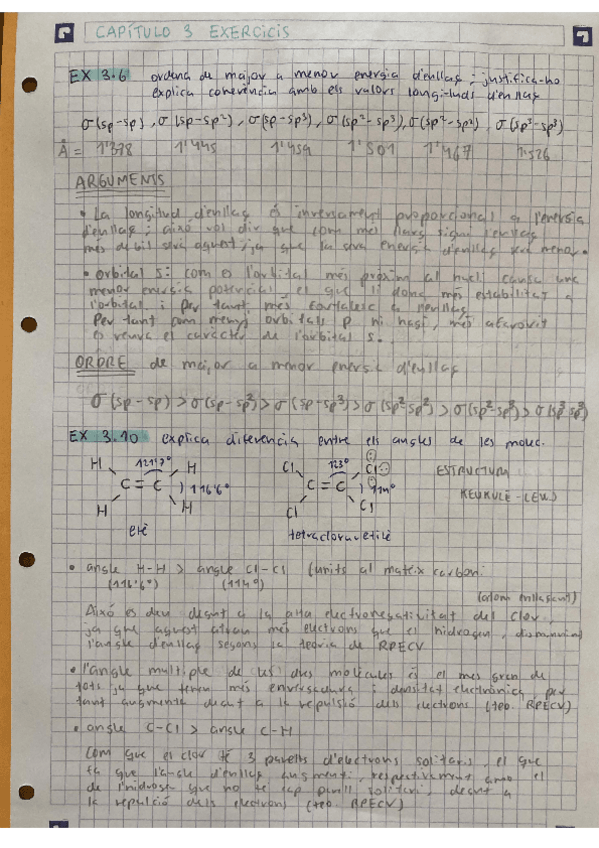 CAPÍTULO 3 EXERCICIS
EX 3.6 ordena de major a menor energia d'enllaç i justifica-ho
explica coherència amb els valors longituds d'enllaç
σ(sp-sp), σ(sp-sp²), σ(sp-sp³), σ(sp²-sp³), σ(sp²-sp²), σ(sp³-sp³)
Å = 1'378 1'445 1'459 1'501 1'467 1'526
ARGUMENTS
• La longitud d'enllaç és inversament proporcional a l'energia
d'enllaç; això vol dir que com més llarg sigui l'enllaç
més dèbil serà aquest, ja que la seva energia d'enllaç serà menor.
• orbital s: com és l'orbital més pròxim al nucli causa una
menor energia potencial el que li dona més estabilitat a
l'orbital i per tant, més fortalesa a l'enllaç.
Per tant com menys orbitals p hi hagi, més afavorit
es veurà el caràcter de l'orbital s.
ORDRE de major a menor energia d'enllaç
σ(sp-sp) > σ(sp-sp²) > σ(sp-sp³) > σ(sp²-sp²) > σ(sp²-sp³) > σ(sp³-sp³)
EX 3.10 explica diferència entre els angles de les molèc.
H 121'7° H Cl 123° Cl ESTRUCTURA
C = C ) 116'6° C = C ) 114° KEUKULÉ-
H H Cl Cl
etè tetracloroetilè
• angle H-H > angle Cl-Cl (units al mateix carboni
(116'6°) (114°)
Això és deu degut a la alta electronegativitat del clor,
ja que aquest atrau més electrons que el hidrogen, disminuint
l'angle d'enllaç segons la teoria de RPECV
• l'angle múltiple de les dues molècules és el més gran de
tots ja que tenen més i densitat electrònica, per
tant augmenta degut a la repulsió dels electrons (teo. RPECV)
• angle C-Cl > angle C-H
Com que el clor té 3 parells d'electrons solitaris, el que
fa que l'angle d'enllaç augmenti, respectivament amb el
de l'hidrogen que no té cap parell solitari, degut a
la repulsió dels electrons (teo. RPECV)